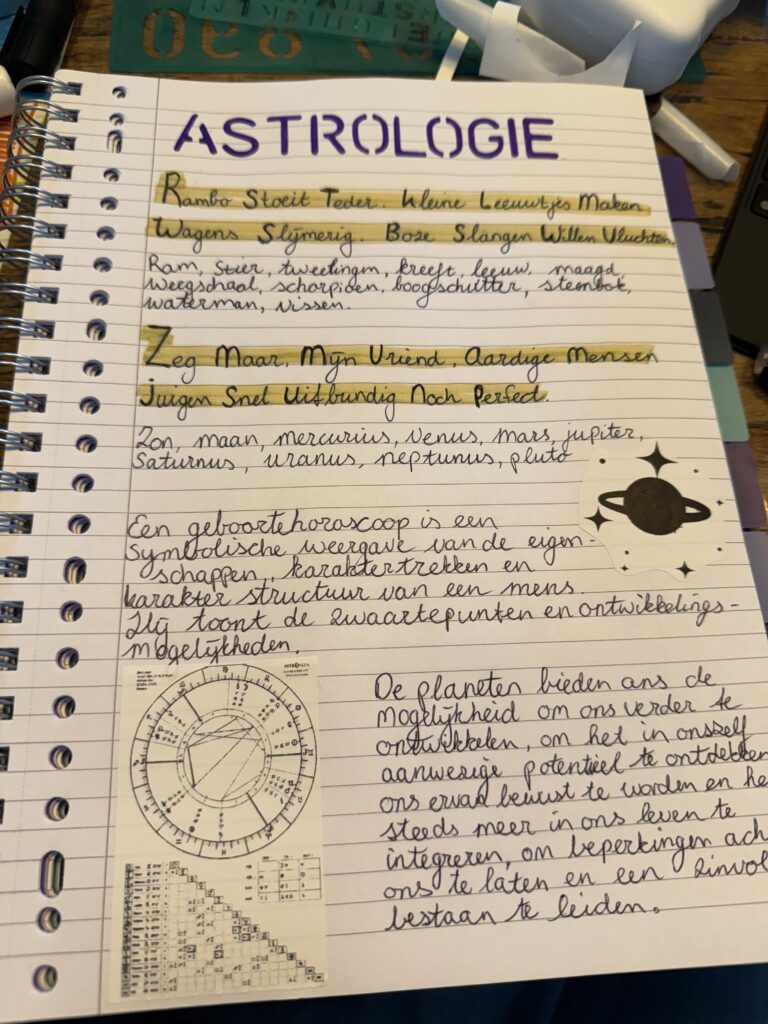 ASTROLOGIE
Rambo Stoeit Teder. Kleine Leeuwtjes Maken
Wagens Slijmerig. Boze Slangen Willen Vluchten.
Ram, stier, tweelingen, kreeft, leeuw, maagd,
weegschaal, schorpioen, boogschutter, steenbok,
waterman, vissen.
Zeg Maar, Mijn Vriend, Aardige Mensen
Juigen Snel Uitbundig Noch Perfect.
Zon, maan, mercurius, venus, mars, jupiter,
Saturnus, uranus, neptunus, pluto
Een geboortehoroscoop is een
symbolische weergave van de eigen-
schappen, karaktertrekken en
karakter structuur van een mens.
Hij toont de zwaartepunten en ontwikkelings-
mogelijkheden.
De planeten bieden ons de
mogelijkheid om ons verder te
ontwikkelen, om het in onszelf
aanwezige potentieel te ontdekken
ons ervan bewust te worden en he
steeds meer in ons leven te
integreren, om beperkingen ach
ons te laten en een zinvol
bestaan te leiden.